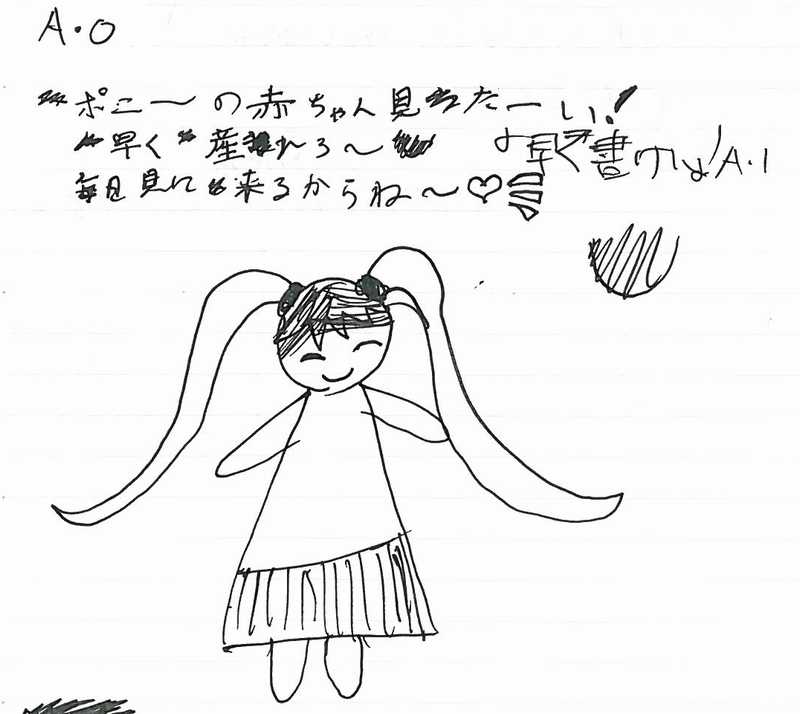 A・O
ポニーの赤ちゃん見たーい!
早く産れろ〜
毎日見に来るからね〜♡
早く書けよ!A・I